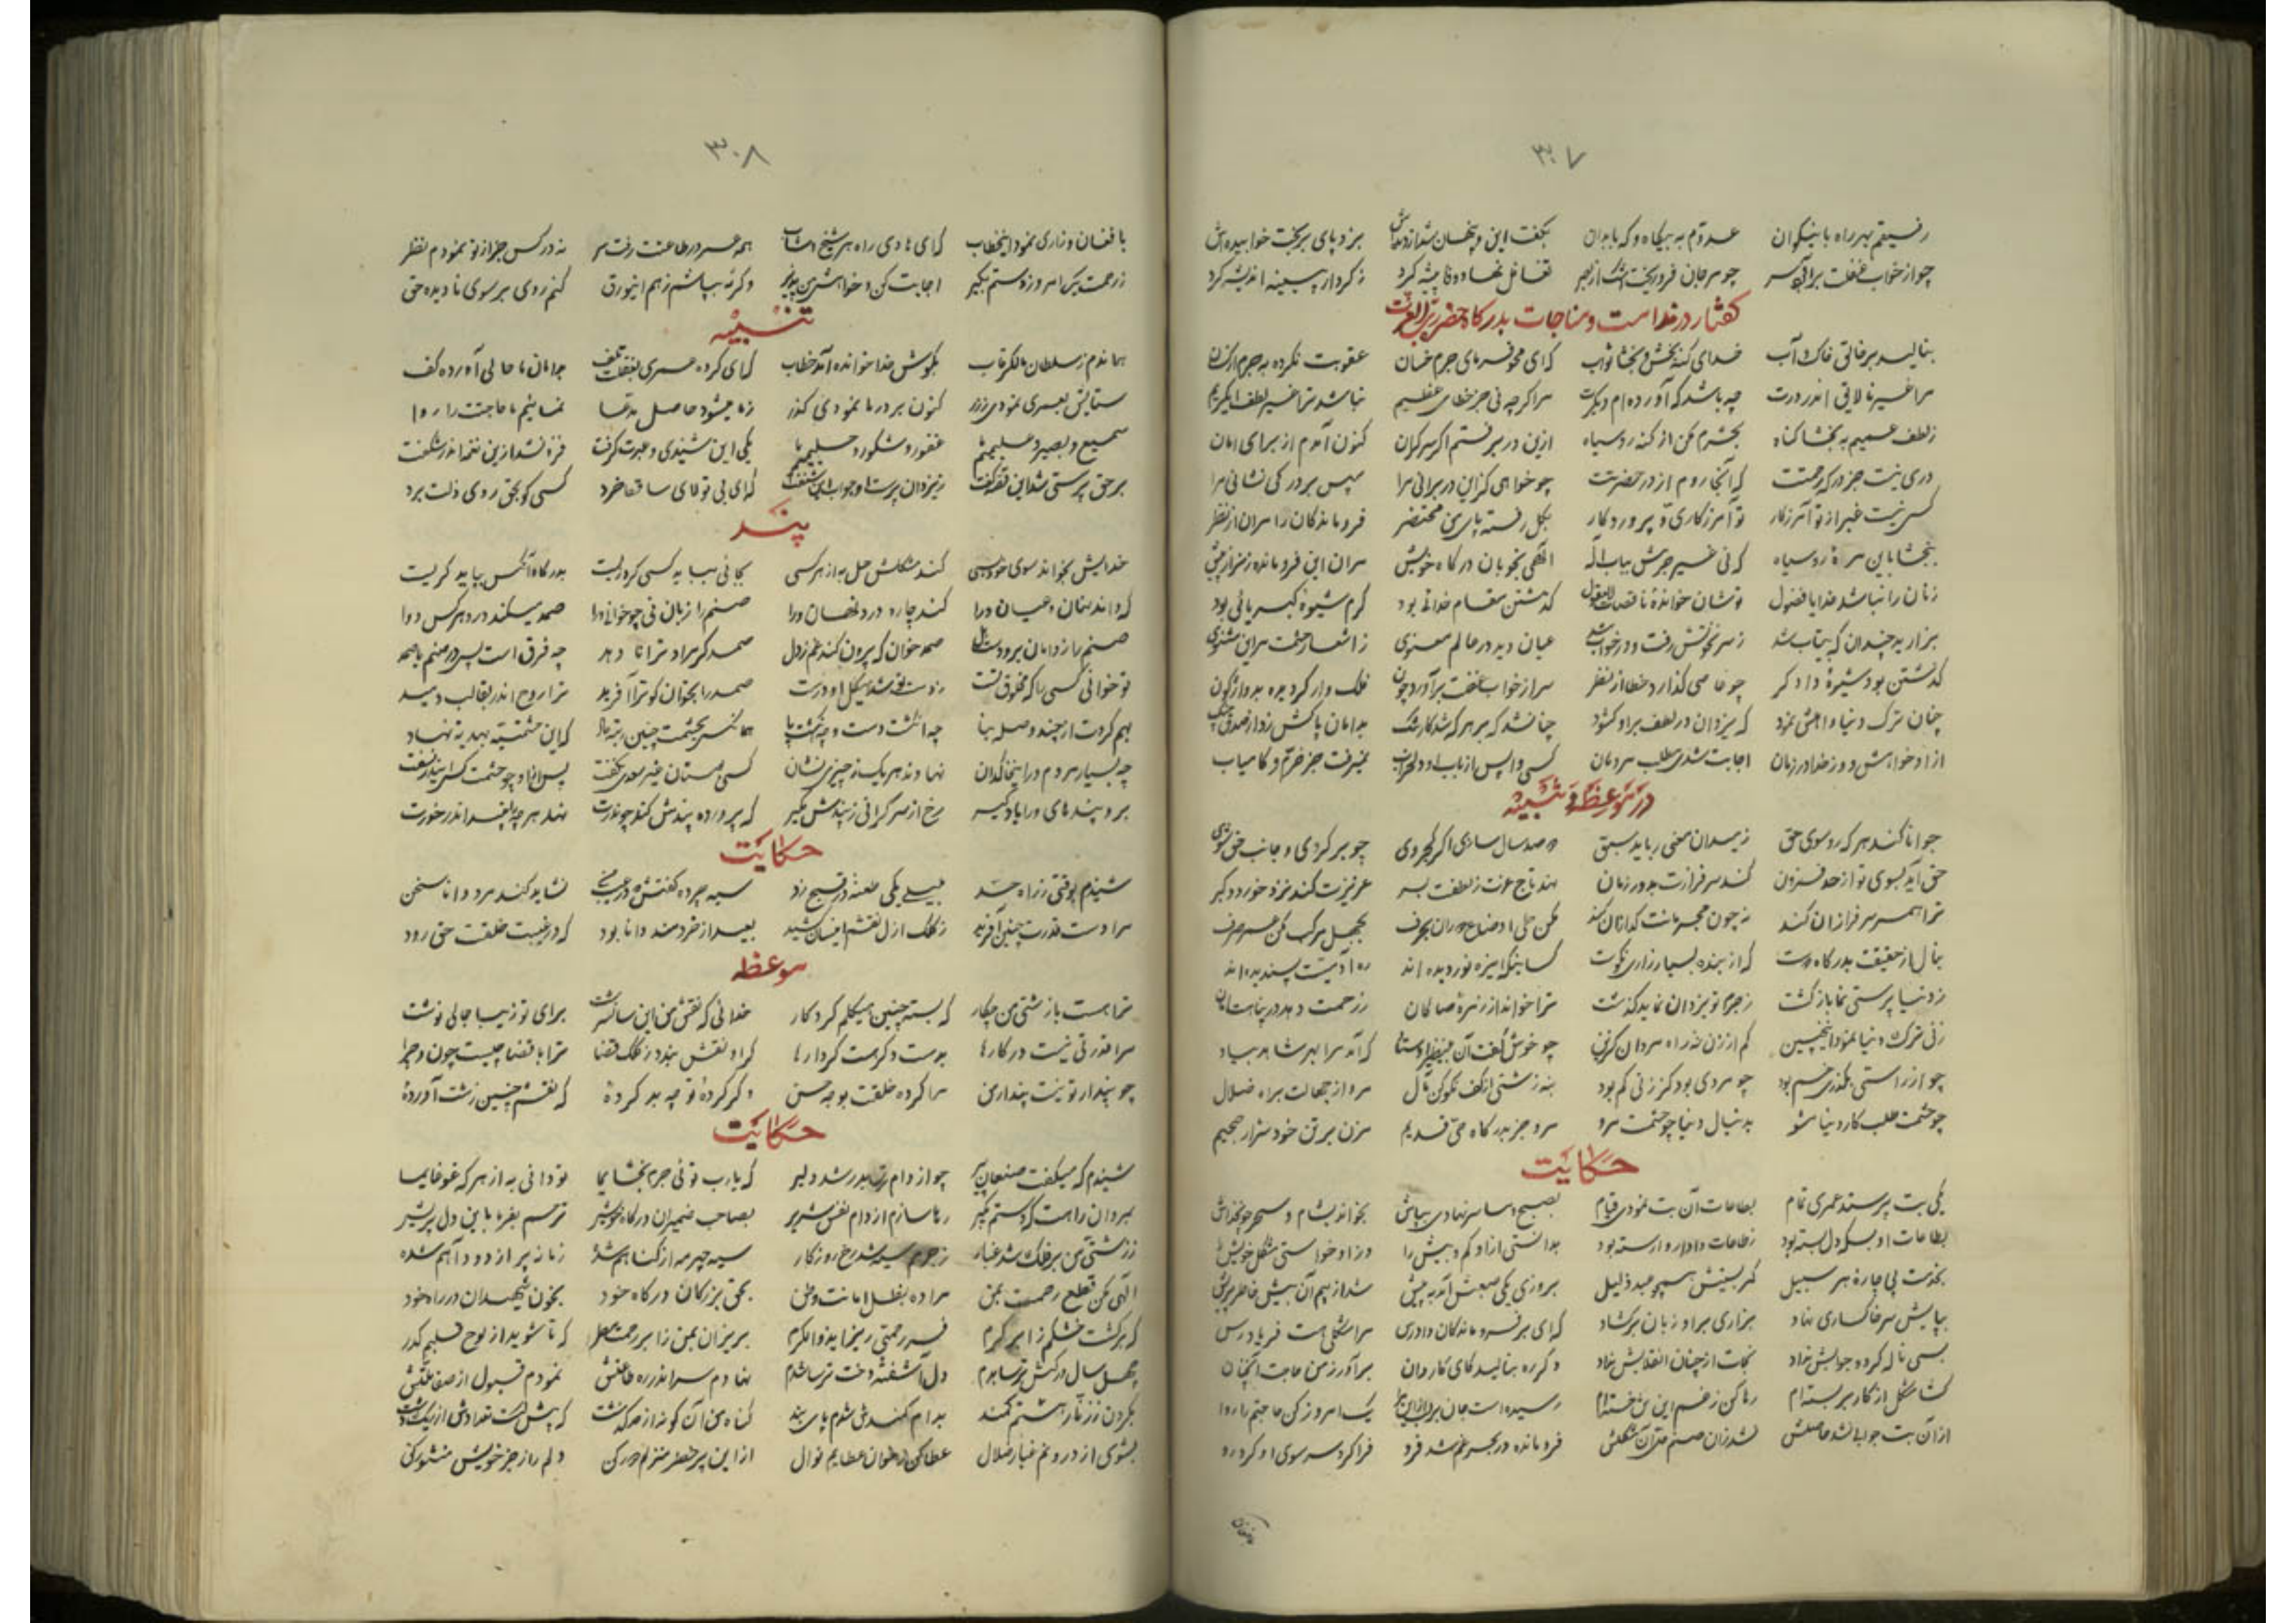 ۳۰۷
رفیقم بهر راه با نیکوان عدوّم به بیگاه و گه با بدان بگفت این و پنهان شد از بزد پای بر بخت خوابیده‌اش
چو از خواب غفلت برآن سر چو مرجان فرو ریخت از بصر تغافل نهاد و وفا پیشه کرد ز کردار پیشینه اندیشه کرد
گفتار در ندامت و مناجات بدرگاه حضرت رب العزت
بنالید بر خالق خاک و آب خدای گنه‌بخش و بخشا ثواب که‌ای محو فرمای جرم خسان عقوبت نکرده به جرم
مرا غیر نالایقی اندر درت چه باشد که آورده‌ام دیگرت مرا گرچه نی جز خطای عظیم نباشد ترا غیر لطف ای کریم
ز لطف عمیم به بخشا گناه بخشرم مکن از گنه روسیاه ازین در برفتم اگر سرگران کنون آمدم از برای امان
دری نیست جز درگه رحمتت که آنجا روم از در حضرتت چو خواهی کزین در برانی مرا سپس بر در کی نشانی مرا
کسی نیست غیر از تو آمرزگار تو آمرزگاری و پروردگار بگل رفته پای من محتضر فرو ماندگان را مران از نظر
ببخشا باین مرءهٔ روسیاه که نی غیر جرمش بیاب اله الهی بخوبان درگاه خویش مران این فرو مانده زنرا ز پیش
زنان را نباشد خدایا فضول توشان خواندهٔ ناقصات العقول گذشتن مقام خدائی بود کرم شیوهٔ کبریائی بود
بزارید چندان که بیتاب شد ز سر هوشش رفت و در خواب شد عیان دید در عالم معنوی ز اشعار حشمت مر این مثنوی
گذشتن بود شیوهٔ دادگر چو عاصی گذارد خطا از نظر سر از خواب غفلت برآورد چون فلک وار گردیده بد واژگون
چنان ترک دنیا و اهلش نمود که یزدان در لطف بر او گشود چنان شد که بر هر که شد کار تنگ بدامان پاکش زد از صدق چنگ
از او خواهش و وز خدا در زمان اجابت شدی مطلب مردمان کسی واپس از باب او نمیرفت جز خرم و کامیاب
در موعظه و تنبیه
جوانا کند هر که رو سوی حق ز میدان معنی رباید سبق دو صد سال ساری اگر کجروی چو برگردی و جانب حق شوی
حق آید بسوی تو از حد فزون کند سرفرازت بدور زمان نهد تاج عزت ز لطفت بسر عزیزت کند نزد خورد و کبر
ترا همسر سرفرازان کند نه چون مجرمانت گدازان کند مکن طی اوضاع دوران بحرف بجهل مرکب مکن عمر صرف
بنال از حقیقت بدرگاه دوست که از بنده بسیار زاری نکوست کسانیکه این ره نوردیده‌اند ره آدمیت پسندیده‌اند
ز دنیا پرستی نما بازگشت ز جرم تو یزدان نماید گذشت ترا خواند از زمرهٔ صالحان ز رحمت دهد در پناهت امان
زنی ترک دنیا نمود اینچنین کم از زن نه در راه مردان گزین چو خوش گفت آن اوستاد که آمد مرا بهر شاهد بیاد
چو از راستی بگذری خم بود چو مردی بود کز زنی کم بود بنه زشتی از کف نکو کن مآل مرو از جهالت براه ضلال
چو حشمت طلب کار دنیا مشو بدنبال دنیا چو حشمت مرو مرو جز بدرگاه حی قدیم مزن برتن خود شرار جحیم
حکایت
یکی بت پرستند عمری تمام بطاعات آن بت نمودی قیام بصبح و مسا سر نهادی بپایش بخواندیش شام و سحر چو خدایش
بطاعات او بسکه دل بسته بود ز طاعات دادار وارسته بود بدانستی از او کم و بیش را و زاو خواستی مشکل خویش را
بخدمت پی چارهٔ هر سبیل کمر بستنش همچو عبد ذلیل بروزی یکی صعبش آمد به پیش شد از بیم آن بیش خاطر پریش
بپایش سر خاکساری نهاد بزاری بر او زبان برگشاد که‌ای بر فرو ماندگان دادرس مرا مشکلی هست فریاد رس
بسی ناله کرد و جوابش نداد نجات از چنان انقلابش نداد دگر ره بنالید کای کاردان برآور ز من حاجت آنچنان
گشا مشکل از کار بربسته‌ام رها کن ز غم این تن خسته‌ام رسیده است جان یک امروز کن حاجتم را روا
از آن بت جوابی نشد حاصلش نشد زان صنم حل آن مشکلش فرو مانده در بحر غم شد فرو فرا کرد سر سوی او کرد رو
بافغان
۳۰۸
با فغان و زاری نمود اینخطاب که‌ای هادی راه هر شیخ و شاب همه عمر در طاعتت رفت سر نه در کس جز از تو نمودم نظر
ز رحمت یک امروز دستم بگیر اجابت کن و خواهش من پذیر وگرنه بپاشم ز هم اینورق کنم روی بر سوی نادیده حق
تنبیه
هماندم ز سلطان مالک رقاب بگوش خدا خوانده آمد خطاب که‌ای کرده عمری بغفلت تلف بدامان ما حالی آورده کف
ستایش بعمری نمودی کنون بر در ما نمودی گذر ز ما میشود حاصل مدعا نمائیم ما حاجتت را روا
سمیع و بصیر و علیمیم ما غفور و شکور و حلیمیم ما یکی این شنیدی و عبرت گرفت فره نشد ازین نغمه اندر شگفت
بر حق پرستی شد این قصه گفت ز یزدان پرست او جواب این شنفت که‌ای بی تو کالای ساقط خرد کسی کو بحق روی ذلت برد
پند
خدایش بخواند سوی خود همی کند مشکلش حل به از هر کسی بجائی بباید کسی کرد زیست بدرگاه آنکس بباید گریست
که داند نهان و عیان ورا کند چاره درد نهان ورا صنم را زبان نی چو خوانی ورا صمد میکند درد هر کس دوا
صنم را ز دامان برو دست هل صمد خوان که بیرون کند غم ز دل صمد گر مراد ترا نا دهد چه فرق است پس در صنم با صمد
تو خوانی کسی را که مخلوق تست ز دست تو شد شکل او درست صمد را بخوان کو ترا آفرید ترا روح اندر بقالب دمید
بهم کردت از چند وصله بپا چه انگشت دست و چه انگشت پا همانکس بچشمت چنین رتبه داد که این حشمتیه بهدیه نهاد
چه بسیار مردم در اینخاکدان نهادند هر یک ز چیزی نشان کسی بوستان غیر سعدی نگفت پس از او چو حشمت
برو پندهای ورا یاد گیر رخ از سر گرانی ز پندش مگیر که پرورده پندش کند چو پدرت نهد هر چه باشد اندر خورت
حکایت
شنیدم بوقتی ز راه حسد یکی طعنه بر قبیح زد سیه چرده گفتش نشاید کند مرد دانا سخن
مرا دست قدرت چنین آفرید ز کلک ازل نقشم اینسان کشید بعید از خردمند دانا بود که در غیبت خلقت حق رود
موعظه
ترا هست با زشتی من چکار که بسته چنین هیکلم کردگار خدائی که نقش من این سان سرشت برای تو زیبا جمالی نوشت
مرا قدرتی نیست در کارها بدوست و کرهست کردارها گر او نقش بندد ز کلک قضا ترا با قضا چیست چون و چرا
چو پندار تو نیست پندار من مرا کرده خلقت بوجه حسن وگر کردهٔ تو چه بد کردهٔ که نقشم چنین زشت آوردهٔ
حکایت
شنیدم که میگفت صنعان پیر چو از دام رشد دلیر که یارب توئی جرم بخشای ما تو دانی به از هر که غوغای ما
بمردان راهت که دستم بگیر رها سازم از دام نفس شریر بصاحب ضمیران درگاه خویش ترحم بفرما باین دل پریش
ز زشتی من بر فلک شد غبار ز جرمم سیه شد رخ روزگار سیه چهر مه از گناهم شده زمانه پر از دود آهم شده
الهی مکن قطع رحمت ز من مرا ده بظل امانت وطن بحق بزرگان درگاه خود بخون شهیدان در راه خود
که برگشت خشکم ز ابر کرم ز رحمتی ریز ای ذوالکرم بریزان بمن ز ابر رحمت مطر که تا شوید از لوح قلبم کدر
چهل سال در کیش ترسا بدم دل آشفتهٔ دخت ترسا شدم نهادم سر اندر ره طاعتش نمودم قبول از صفا ملتش
بگردن ز زنار بستم کمند بدام کمندش شدم پای بند گناه من آن گونه از حد گذشت که بیش است تعدادش از ریگ دشت
بشوی از درونم غبار ضلال عطا کن ز خوان عطایم نوال از این پر خطر منزلم دور کن دلم را ز جز خویش منثور کن